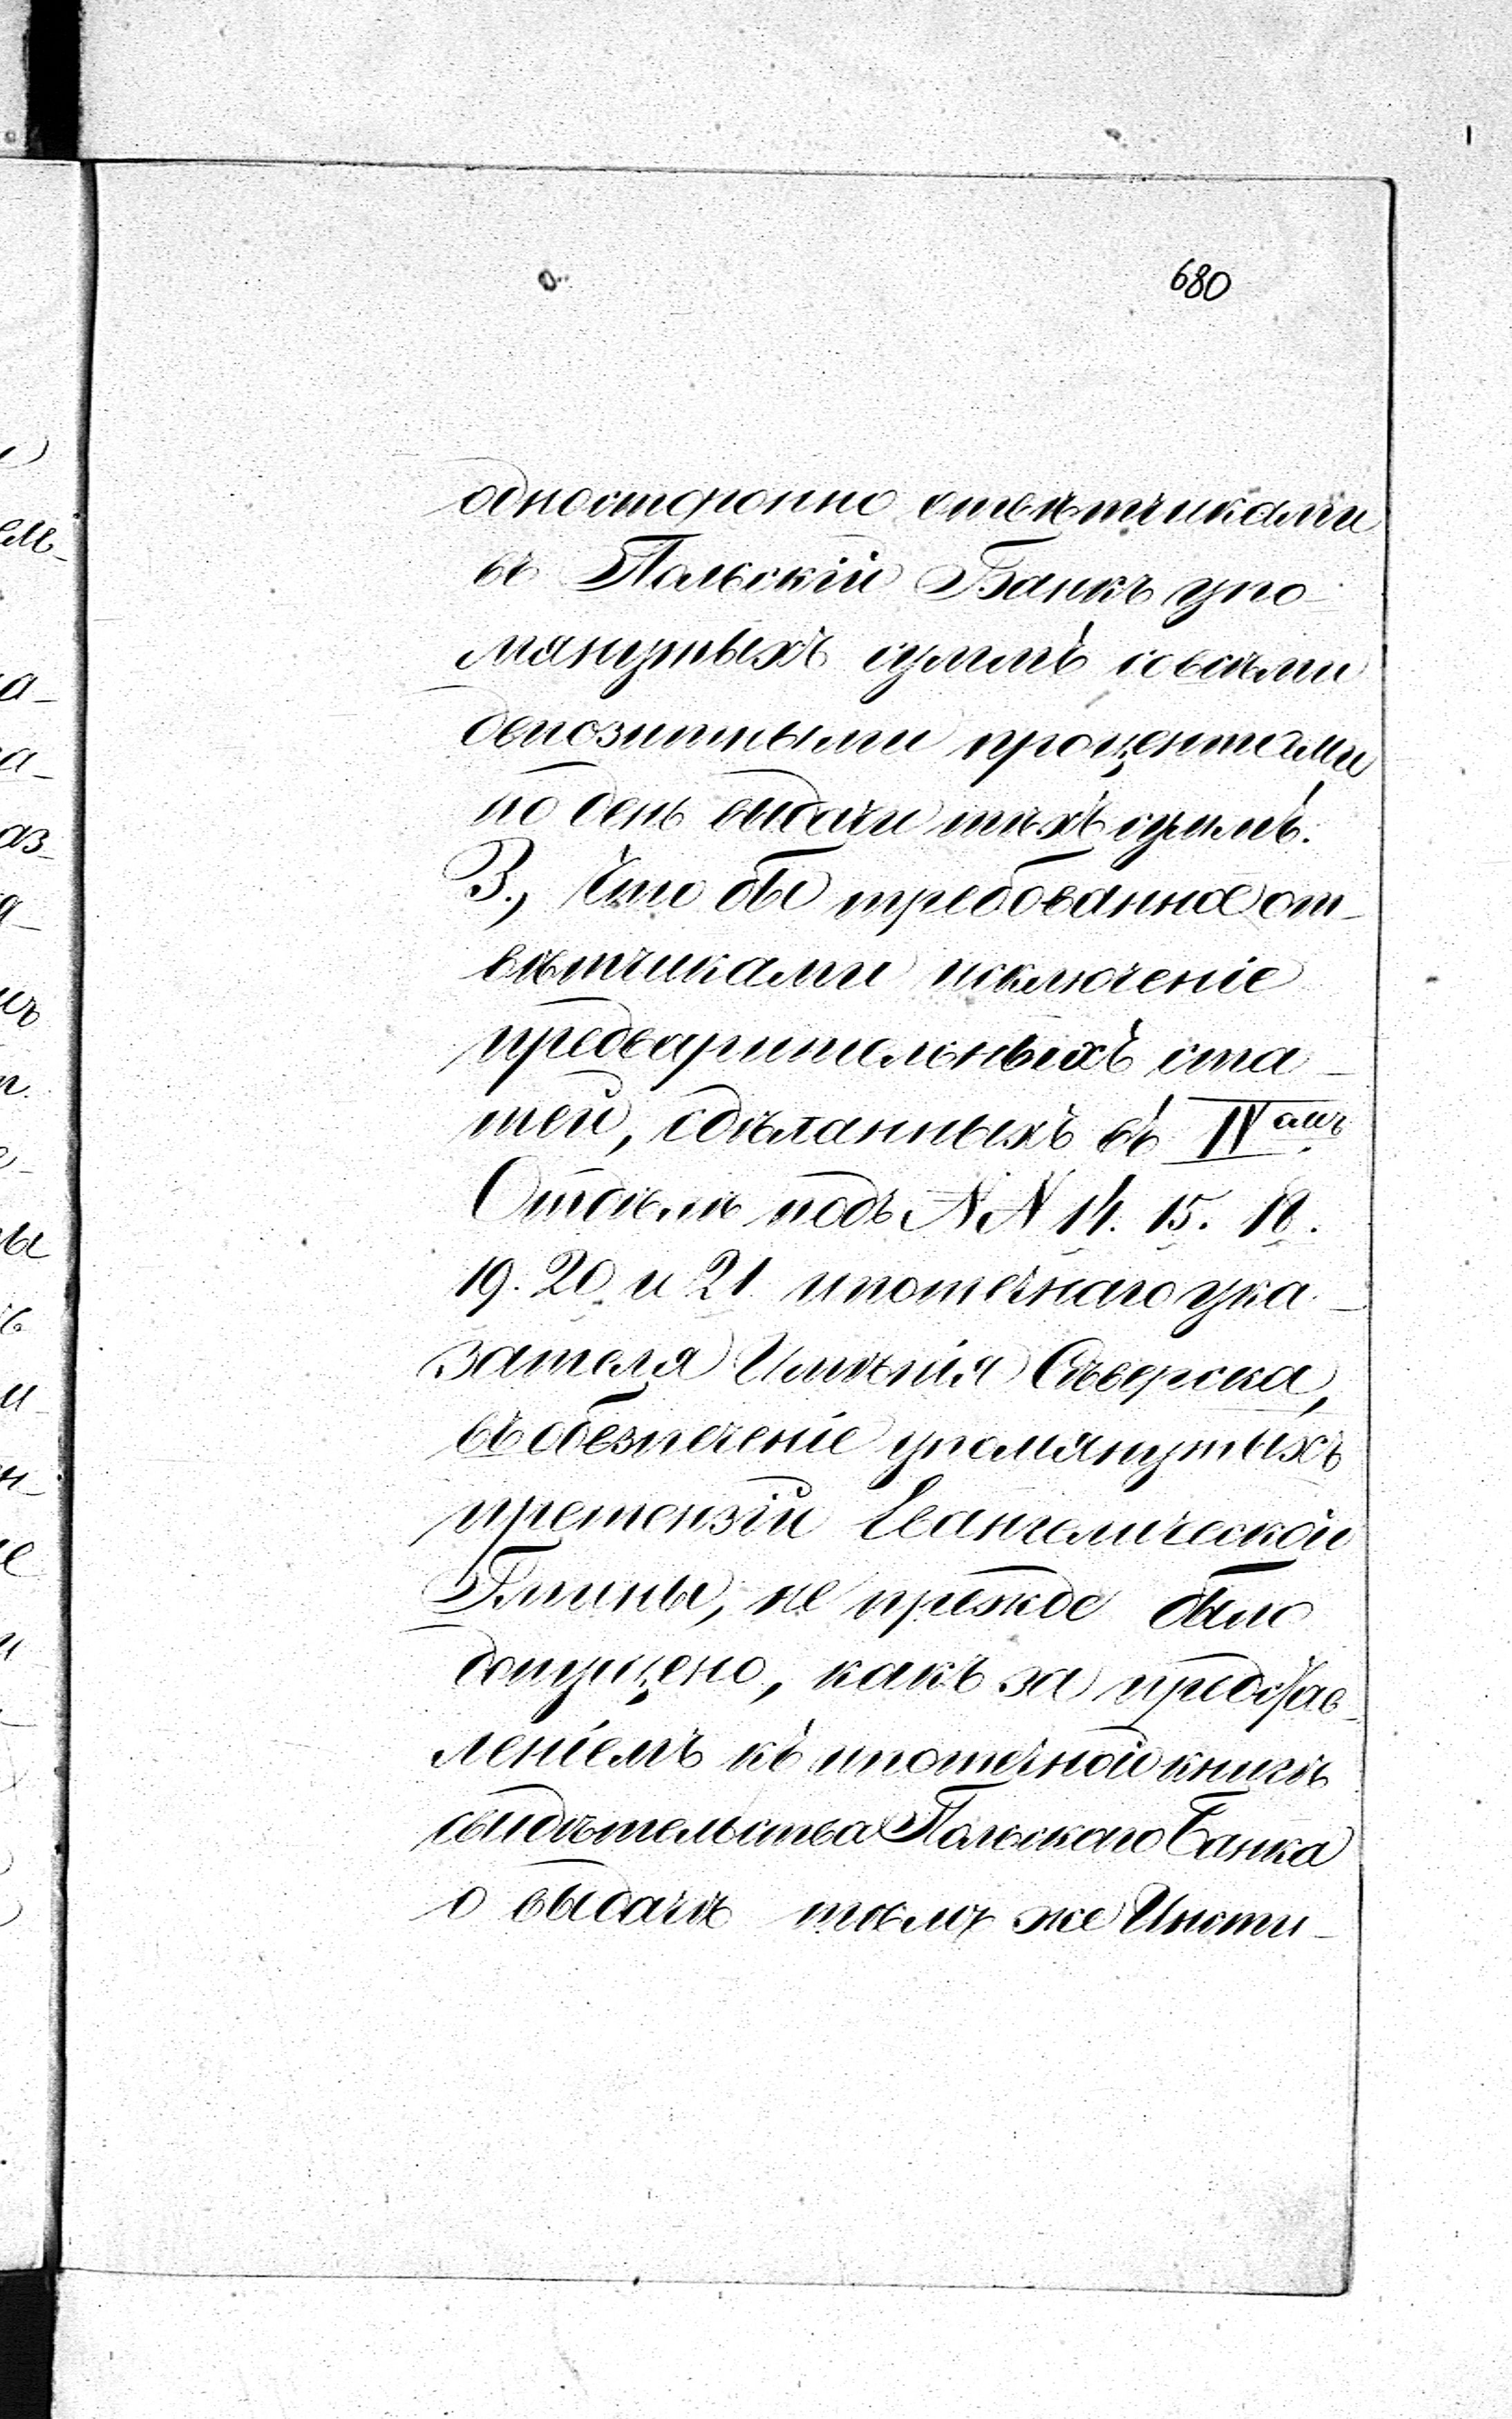 680
односторонно отвѣтчиками
въ Польскій Банкъ упо-
мянутыхъ суммъ со всѣми
депозитными процентами
по день выдачи тѣхъ суммъ.
3., Что бы требованное от-
вѣтчиками исключеніе
предварительныхъ ста-
тей, сдѣланныхъ въ IVомъ
Отдѣлѣ подъ NN 14. 15. 18.
19. 20 и 21 ипотечнаго ука-
зателя Имѣнія Сѣверска,
въ обезпеченіе упомянутыхъ
претензій Евангелической
Гмины, не прежде было
допущено, какъ за представ-
леніемъ къ ипотечной книгѣ
свидѣтельства Польскаго Банка
о выдачѣ тѣмъ же Инсти-